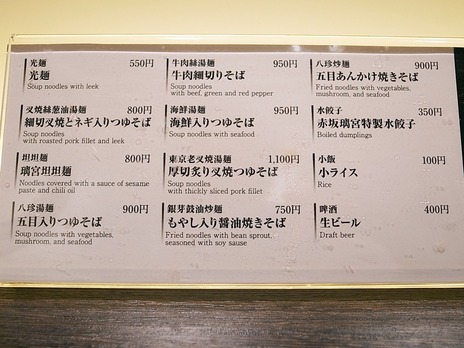 光麺 550円
光麺
Soup noodles with leek
叉焼絲葱油湯麺 800円
細切り叉焼とネギ入りつゆそば
Soup noodles
with roasted pork fillet and leek
坦坦麺 800円
璃宮坦坦麺
Noodles covered with a sauce of sesame
paste and chili oil
八珍湯麺 900円
五目入りつゆそば
Soup noodles with vegetables,
mushroom, and seafood
牛肉絲湯麺 950円
牛肉細切りそば
Soup noodles
with beef, green and red pepper
海鮮湯麺 950円
海鮮入りつゆそば
Soup noodles with seafood
東京老叉焼湯麺 1,100円
厚切炙り叉焼つゆそば
Soup noodles
with thickly sliced pork fillet
銀芽鼓油炒麺 750円
もやし入り醤油焼きそば
Fried noodles with bean sprout,
seasoned with soy sause
八珍炒麺 900円
五目あんかけ焼きそば
Fried noodles with vegetables,
mushroom, and seafood
水餃子 350円
赤坂璃宮特製水餃子
Boiled dumplings
小飯 100円
小ライス
Rice
啤酒 400円
生ビール
Draft beer